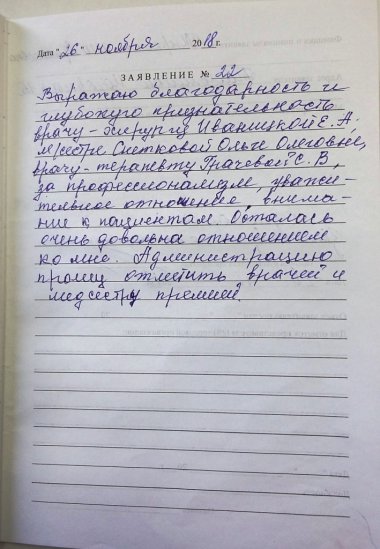 Дата "26" ноября 2018 г.
ЗАЯВЛЕНИЕ № 22
Выражаю благодарность и
глубокую признательность
врачу - хирургу Иваницкой Е. А,
м/сестре Слетковой Ольге Олеговне,
врачу - терапевту Грачевой С. В,
за профессионализм, уважи-
тельное отношение, внима-
ние к пациентам. Осталась
очень довольна отношением
ко мне. Администрацию
прошу отметить врачей и
медсестру премией.